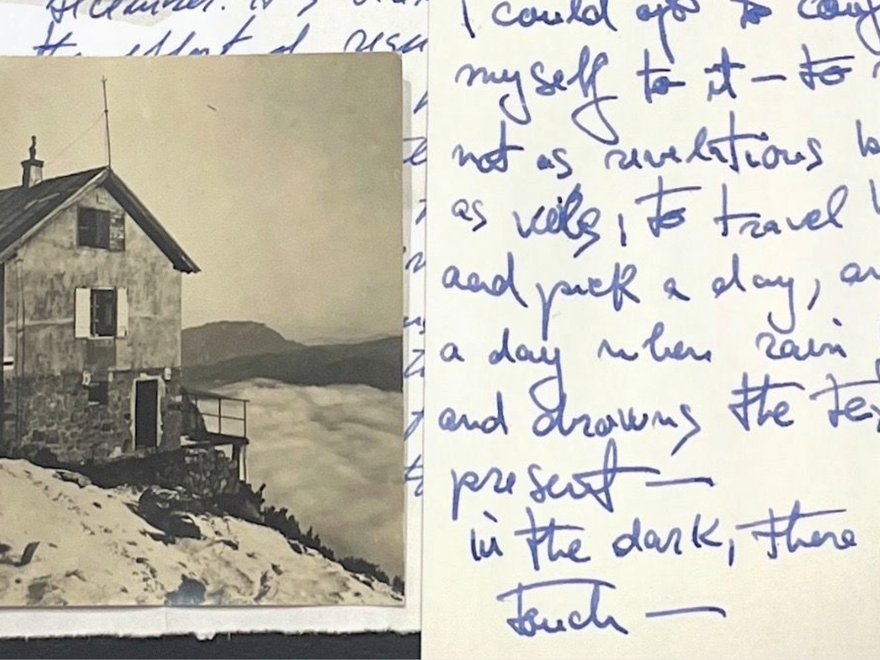 the effort of
I could
myself to it – to
not as revelations
as veils, to travel
and pick a day,
a day when rain
and drowns the
present —
in the dark, there
touch —